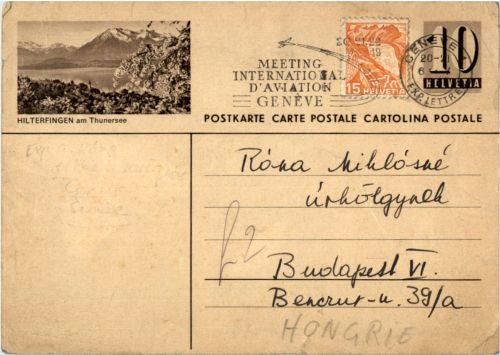 MEETING
INTERNATIONAL
D'AVIATION
GENÈVE
15 HELVETIA
GENÈVE
EXP. LETTRES
10
HELVETIA
HILTERFINGEN am Thunersee
POSTKARTE CARTE POSTALE CARTOLINA POSTALE
Róna Miklósné
úrhölgynek
Budapest VI.
Benczur-u. 39/a
HONGRIE